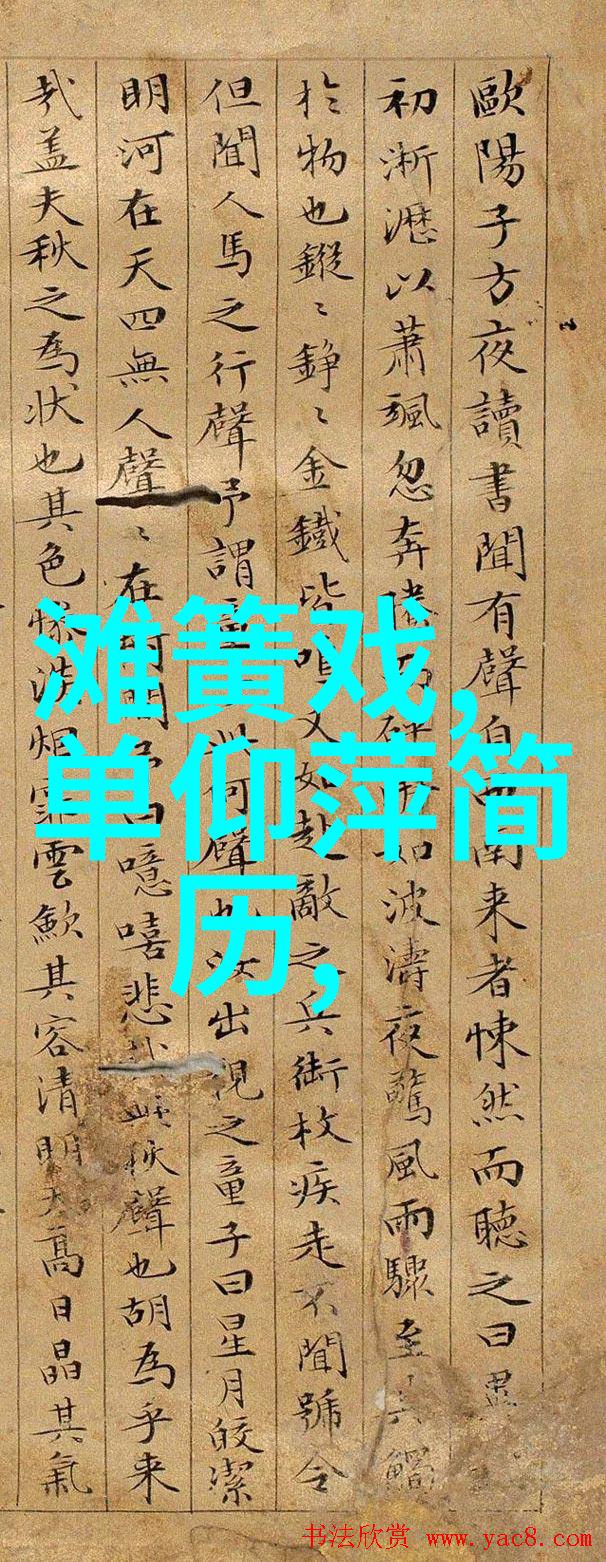 歐陽子方夜讀書聞有聲自南来者悚然而聽之曰異
初淅瀝以蕭颯忽奔如波濤夜驚風雨驟至其觸
扵物也鏦〻錚〻金鐵皆鳴又如赴敵之兵銜枚疾走不聞號令
但聞人馬之行聲予謂此何聲也汝出視之童子曰星月皎潔
明河在天四無人聲〻在間曰噫嘻悲秋聲也胡為乎来
㢤盖夫秋之為状也其色慘淡烟霏雲歛其容清明天高日晶其氣
滩簧戏,
单仰萍简
历,
书法欣赏 www.yac8.com